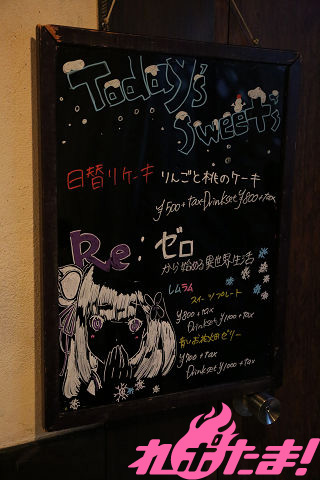 Today's
Sweet's
日替りケーキ りんごと桃のケーキ
¥500+tax Drinkset ¥800+tax
Re:ゼロ
から始める異世界生活
レムラム
スイーツプレート
¥800+tax
Drinkset ¥1000+tax
青いお花畑ゼリー
¥900+tax
Drinkset ¥1000+tax
れポたま!